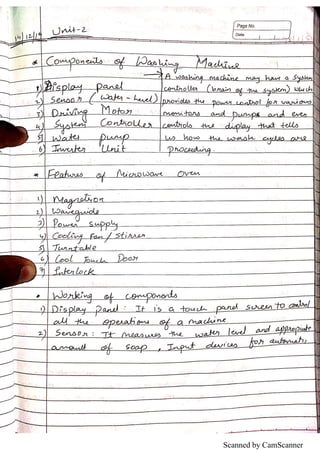 Page No.
Date
14/12/18
Unit-2
* Components of Washing Machine
1) Display panel
2) Sensor (Water-Level)
3) Driving Motor
4) System Controller
5) Water pump
6) Inverter Unit
→ A washing machine may have a system
controller (brain of the system) which
provides the power control for various
monitors and pumps and even
controls the display that tells
us how the wash cycles are
proceding.
* Features of Microwave oven
1) Magnetron
2) Waveguide
3) Power supply
4) Cooling Fan / Stirrer
5) Turntable
6) Cool Touch Door
7) Interlock
* Working of components
1) Display panel : It is a touch panel screen to control
all the operations of a machine
2) Sensor : It measures the water level and appropriate
amount of soap, Input devices for automatic
Scanned by CamScanner